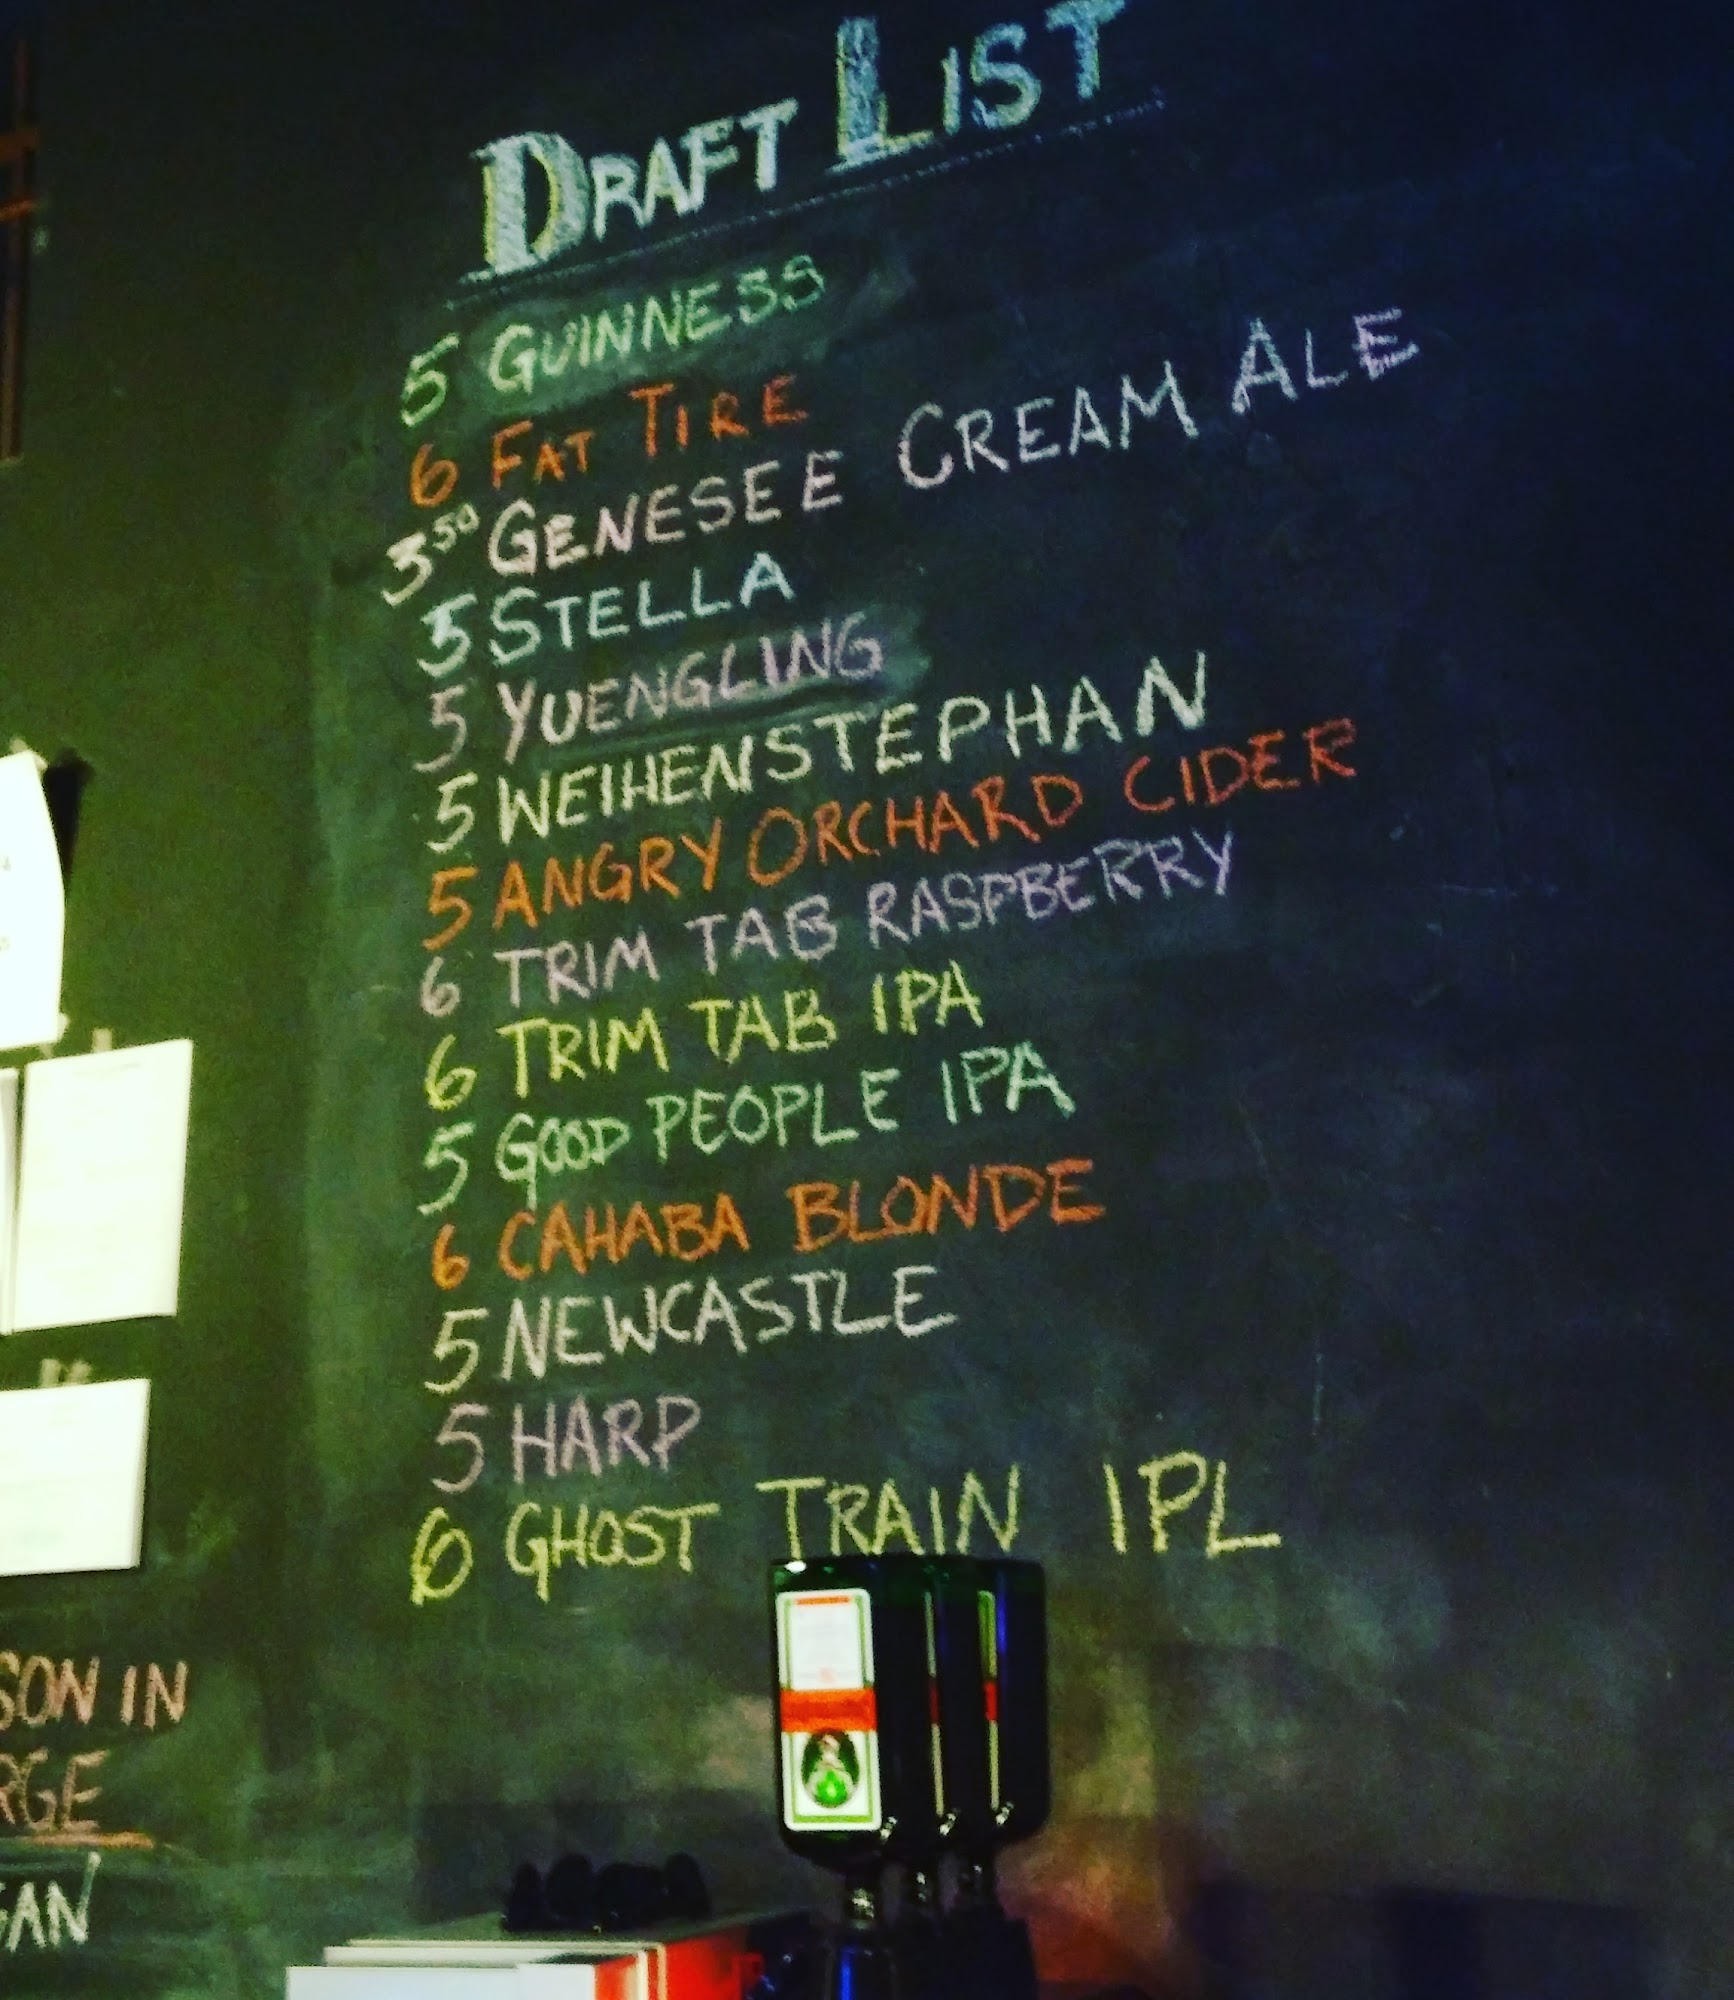 DRAFT LIST
5 GUINNESS
6 FAT TIRE
3 50 GENESEE CREAM ALE
5 STELLA
5 YUENGLING
5 WEIHENSTEPHAN
5 ANGRY ORCHARD CIDER
6 TRIM TAB RASPBERRY
6 TRIM TAB IPA
5 GOOD PEOPLE IPA
6 CAHABA BLONDE
5 NEWCASTLE
5 HARP
6 GHOST TRAIN IPL
SON IN
RGE
GAN